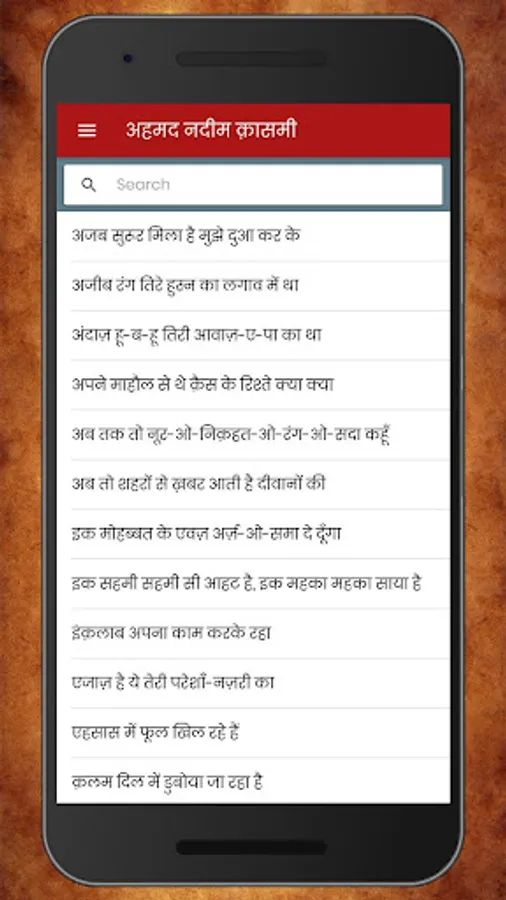 अहमद नदीम क़ासमी
Search
अजब सुरूर मिला है मुझे दुआ कर के
अजीब रंग तिरे हुस्न का लगाव में था
अंदाज़ हू-ब-हू तिरी आवाज़-ए-पा का था
अपने माहौल से थे क़ैस के रिश्ते क्या क्या
अब तक तो नूर-ओ-निक़हत-ओ-रंग-ओ-सदा कहूँ
अब तो शहरों से ख़बर आती है दीवानों की
इक मोहब्बत के एवज़ अर्ज़-ओ-समा दे दूँगा
इक सहमी सहमी सी आहट है, इक महका महका साया है
इंक़लाब अपना काम करके रहा
एजाज़ है ये तेरी परेशाँ-नज़री का
एहसास में फूल खिल रहे हैं
क़लम दिल में डुबोया जा रहा है